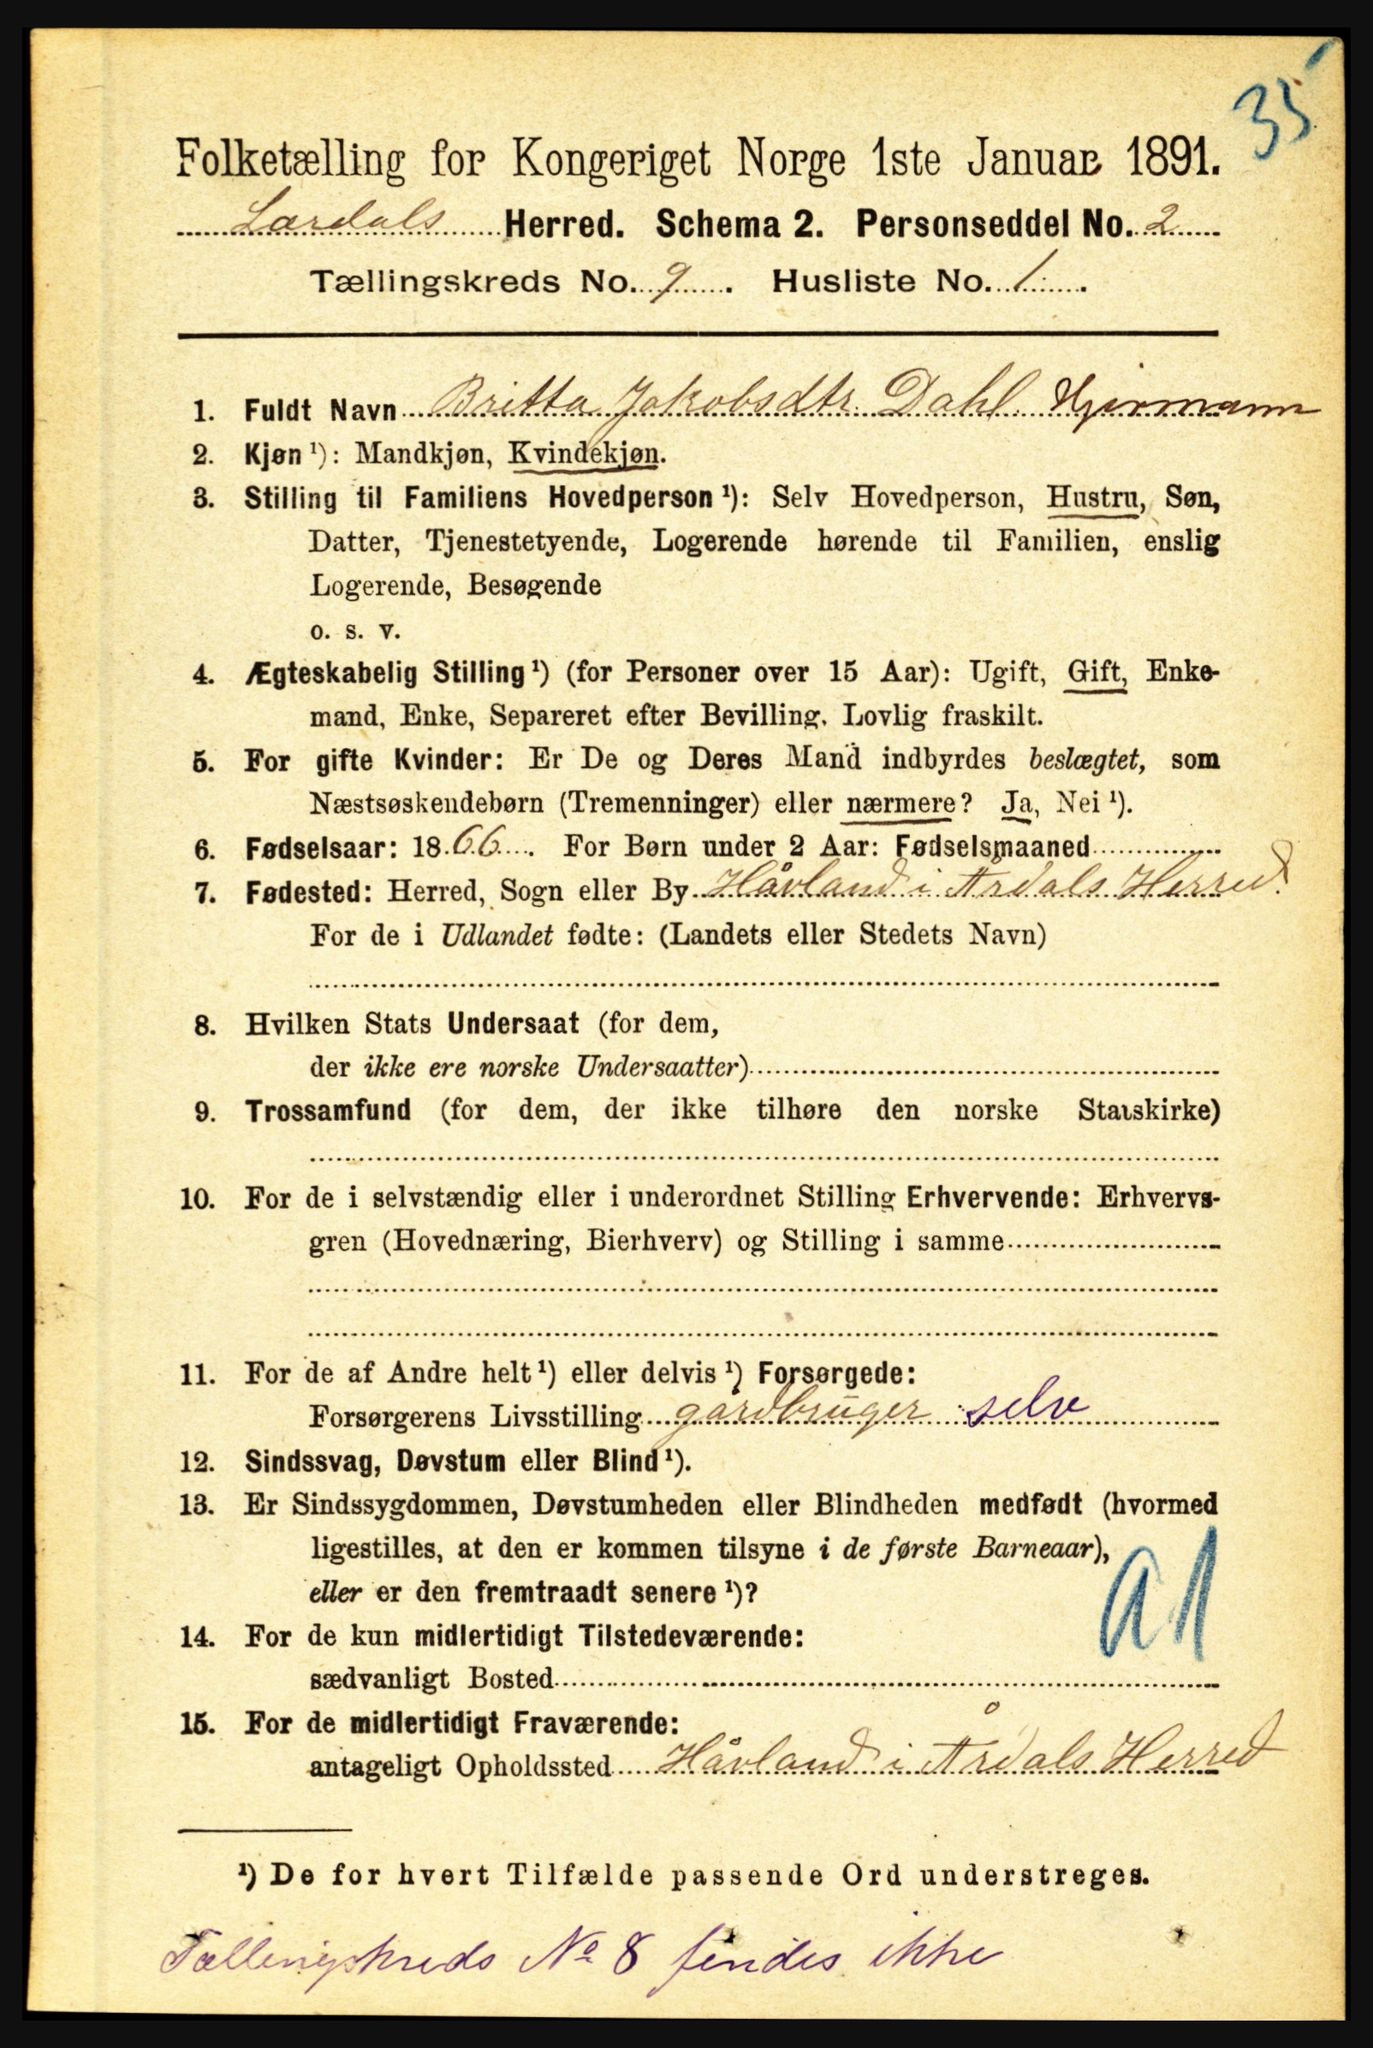 35
Folketælling for Kongeriget Norge 1ste Januar 1891.
Lærdals Herred. Schema 2. Personseddel No. 2
Tællingskreds No. 9. Husliste No. 1.
1. Fuldt Navn Britta Jakobsdtr. Dahl Hjermann
2. Kjøn ¹): Mandkjøn, Kvindekjøn.
3. Stilling til Familiens Hovedperson ¹): Selv Hovedperson, Hustru, Søn,
Datter, Tjenestetyende, Logerende hørende til Familien, enslig
Logerende, Besøgende
o. s. v.
4. Ægteskabelig Stilling ¹) (for Personer over 15 Aar): Ugift, Gift, Enke-
mand, Enke, Separeret efter Bevilling, Lovlig fraskilt.
5. For gifte Kvinder: Er De og Deres Mand indbyrdes beslægtet, som
Næstsøskendebørn (Tremenninger) eller nærmere? Ja, Nei ¹).
6. Fødselsaar: 1866. For Børn under 2 Aar: Fødselsmaaned
7. Fødested: Herred, Sogn eller By Håvland i Årdals Herred
For de i Udlandet fødte: (Landets eller Stedets Navn)
8. Hvilken Stats Undersaat (for dem,
der ikke ere norske Undersaatter)
9. Trossamfund (for dem, der ikke tilhøre den norske Statskirke)
10. For de i selvstændig eller i underordnet Stilling Erhvervende: Erhvervs-
gren (Hovednæring, Bierhverv) og Stilling i samme
11. For de af Andre helt ¹) eller delvis ¹) Forsørgede:
Forsørgerens Livsstilling gårdbruger selv
12. Sindssvag, Døvstum eller Blind ¹).
13. Er Sindssygdommen, Døvstumheden eller Blindheden medfødt (hvormed
ligestilles, at den er kommen tilsyne i de første Barneaar),
eller er den fremtraadt senere ¹)?
a1
14. For de kun midlertidigt Tilstedeværende:
sædvanligt Bosted
15. For de midlertidigt Fraværende:
antageligt Opholdssted Håvland i Årdals Herred
¹) De for hvert Tilfælde passende Ord understreges.
Tællingskreds No 8 findes ikke